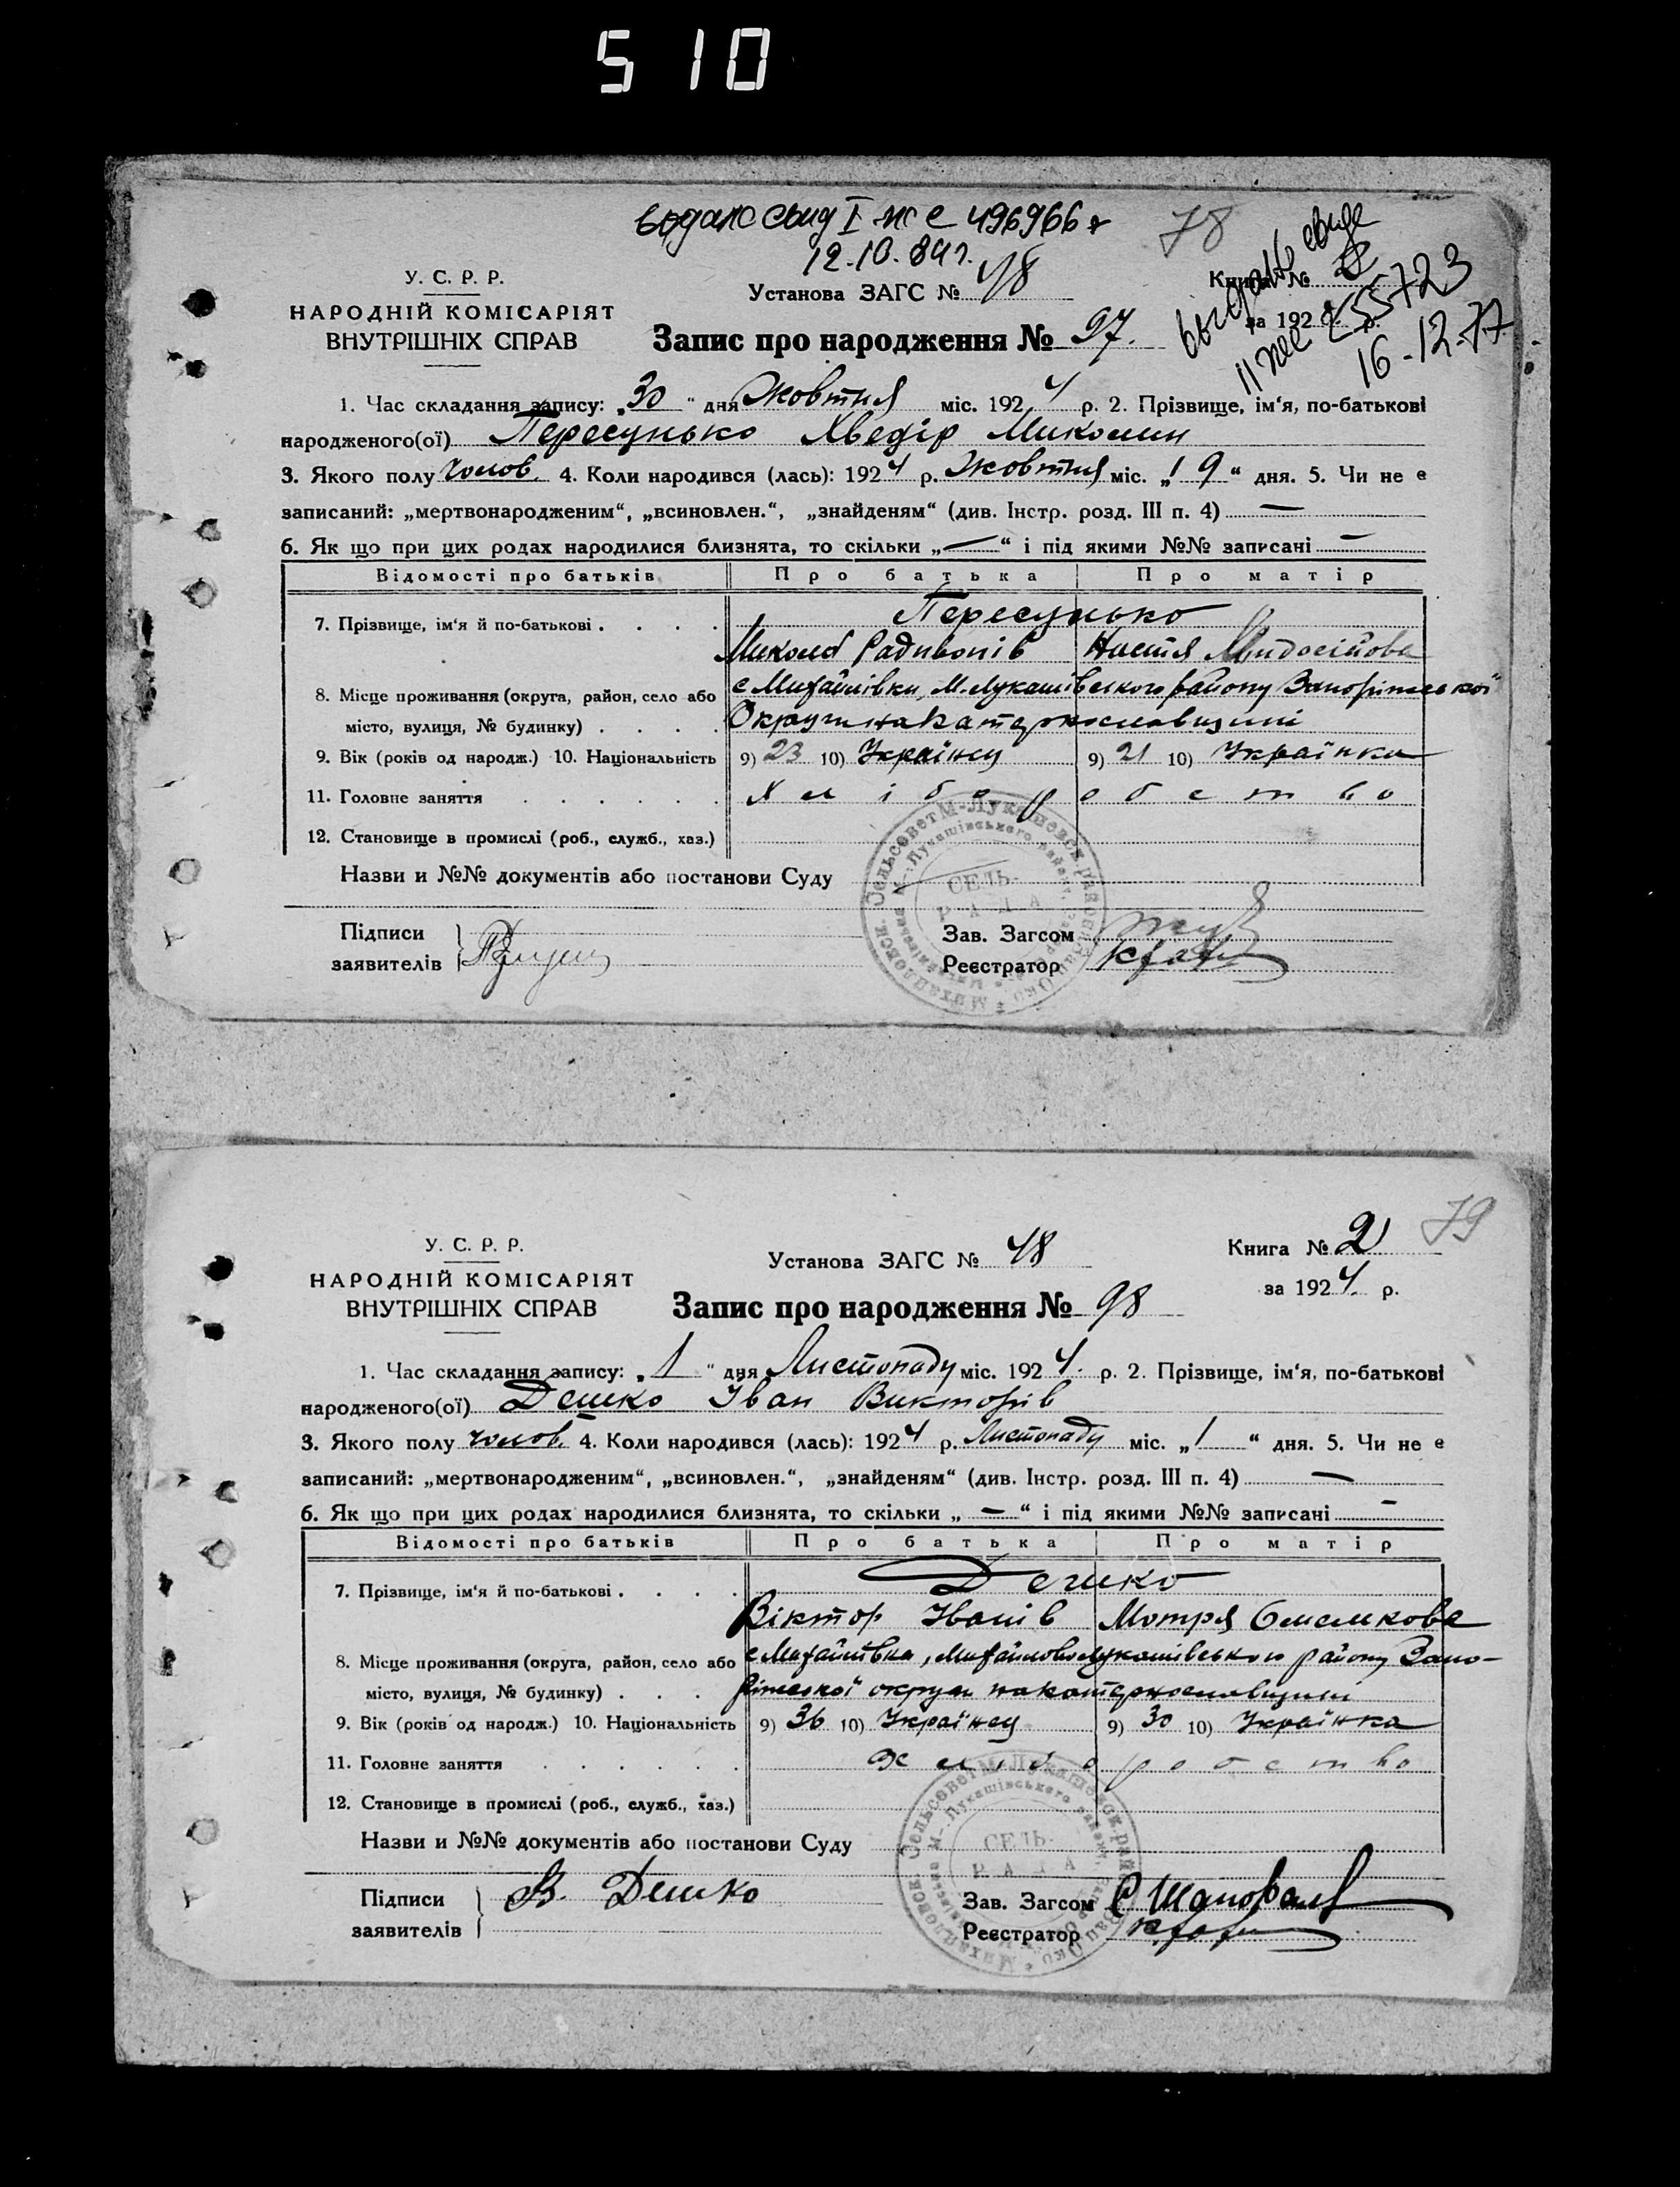 5 10
видано свид I ЖС 496966
12.10.84 г.
78
У. С. Р. Р.
НАРОДНІЙ КОМІСАРІЯТ
ВНУТРІШНІХ СПРАВ
Установа ЗАГС № 48
Книга № 2
за 192 р.
255723
16-12-77
Запис про народження № 97.
1. Час складання запису: „30“ дня Жовтня міс. 1924 р. 2. Прізвище, ім'я, по-батькові
народженого(ої) Пересунько Хведір Миколин
3. Якого полу чолов. 4. Коли народився (лась): 1924 р. Жовтня міс. „19“ дня. 5. Чи не є
записаний: „мертвонародженим“, „всиновлен.“, „знайденям“ (див. Інстр. розд. III п. 4) —
6. Як що при цих родах народилися близнята, то скільки „—“ і під якими №№ записані —
Відомості про батьків Про батька Про матір
7. Прізвище, ім'я й по-батькові . . . . Пересунько
Микола Радивонів Настя
8. Місце проживання (округа, район, село або с Михайлівки, М-Лукашівського району Запоріжської
місто, вулиця, № будинку) . . . . Округи на Катернославщині
9. Вік (років од народж.) 10. Національність 9) 23 10) Українец 9) 21 10) Українка
11. Головне заняття . . . . . . Хліборобство
12. Становище в промислі (роб., служб., хаз.)
Назви и №№ документів або постанови Суду
СЕЛЬ-
РАДА
Підписи
заявителів
Зав. Загсом
Реєстратор
79
У. С. Р. Р.
НАРОДНІЙ КОМІСАРІЯТ
ВНУТРІШНІХ СПРАВ
Установа ЗАГС № 48
Книга № 2
за 1924. р.
Запис про народження № 98
1. Час складання запису: „1“ дня Листопаду міс. 1924. р. 2. Прізвище, ім'я, по-батькові
народженого(ої) Дешко Іван Викторів
3. Якого полу чолов. 4. Коли народився (лась): 1924 р. Листопаду міс. „1“ дня. 5. Чи не є
записаний: „мертвонародженим“, „всиновлен.“, „знайденям“ (див. Інстр. розд. III п. 4) —
6. Як що при цих родах народилися близнята, то скільки „—“ і під якими №№ записані —
Відомості про батьків Про батька Про матір
7. Прізвище, ім'я й по-батькові . . . . Дешко
Віктор Іванів Мотря Омелькова
8. Місце проживання (округа, район, село або с Михайлівка, Михайловолукашівського району Запо-
місто, вулиця, № будинку) . . . ріжської округи на Катернославщини
9. Вік (років од народж.) 10. Національність 9) 36 10) Українец 9) 30 10) Українка
11. Головне заняття . . . . . . Хліборобство
12. Становище в промислі (роб., служб., хаз.)
Назви и №№ документів або постанови Суду
СЕЛЬ-
РАДА
Підписи
заявителів
В. Дешко
Зав. Загсом С Шаповал
Реєстратор